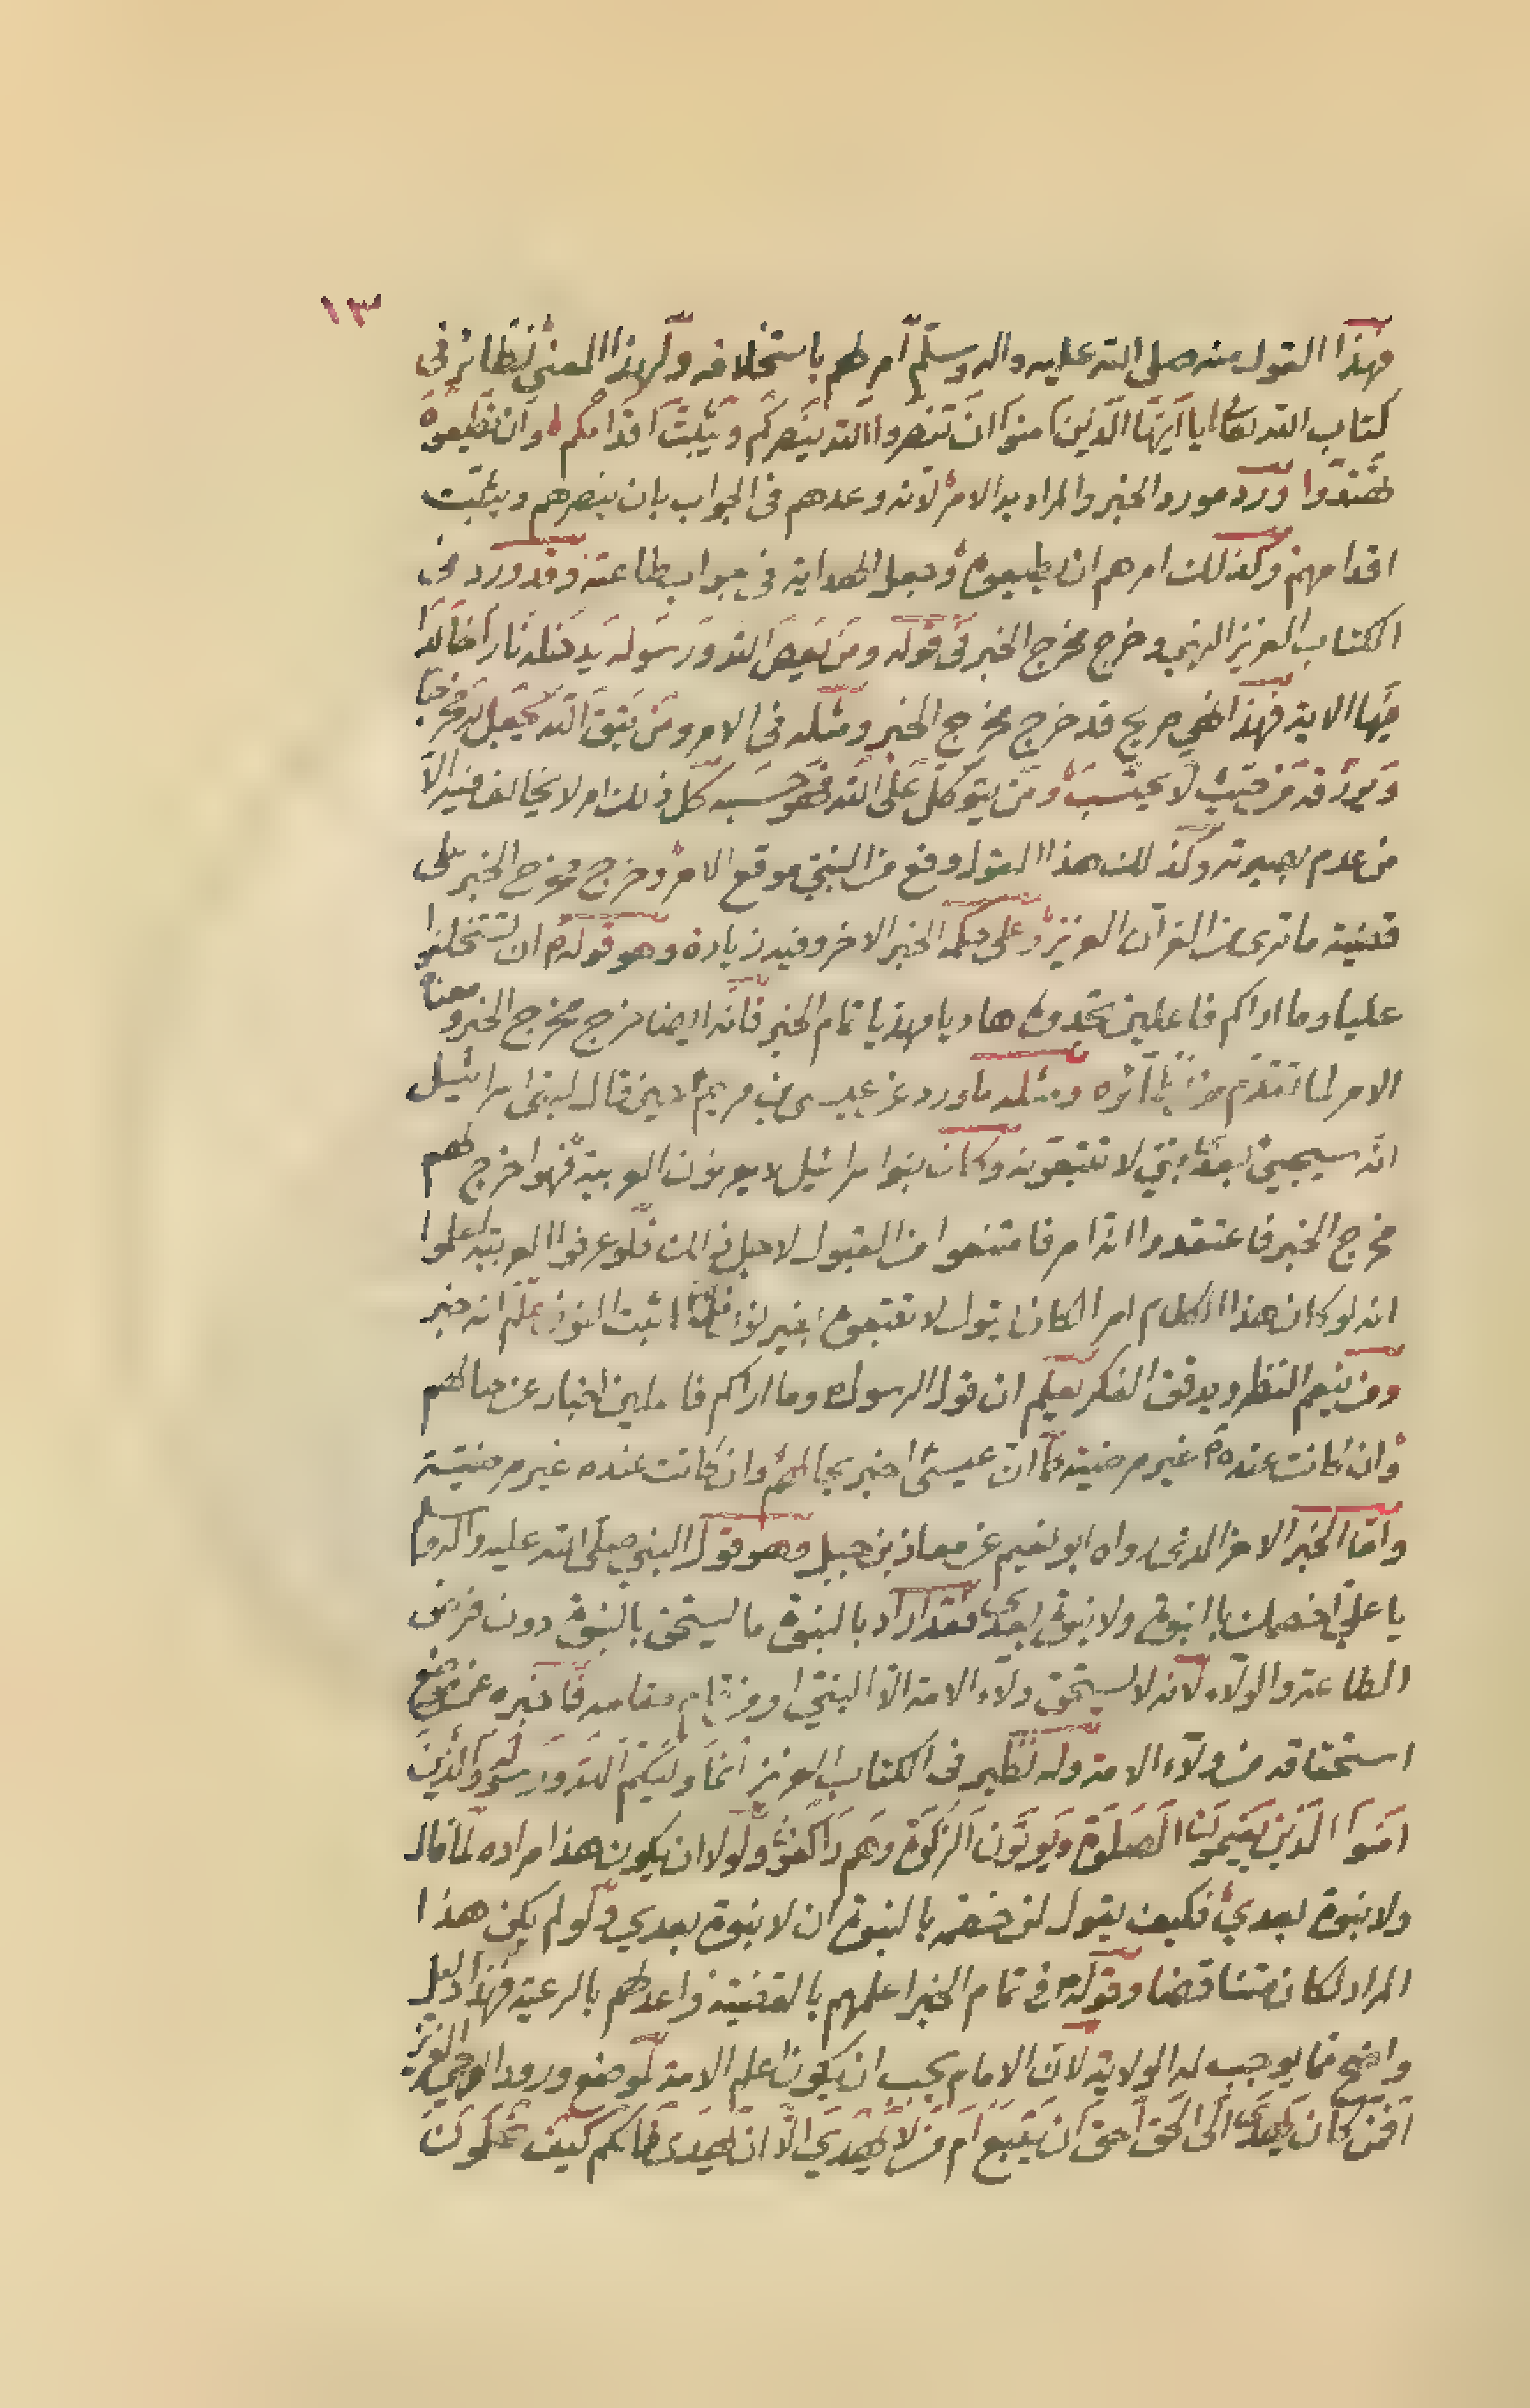 ١٣
فهذا القول منه صلى الله عليه واله وسلم أمر لهم باستخلافه ولهذا المعنى نظائر في
كتاب الله تعالى يا أيها الذين امنوا ان تنصروا الله ينصركم ويثبت أقدامكم وان تطيعوه
تهتدوا ورد مورد الخبر والمراد به الامر لانه وعدهم في الجواب بان ينصرهم ويثبت
اقدامهم وكذلك امرهم ان يطيعوه وجعل الهداية في جواب طاعته وقد ورد في
الكتاب العزيز النهي وخرج مخرج الخبر في قوله ومن يعص الله ورسوله يدخله نارا خالدا
فيها الاية فهذا نهي صريح قد خرج مخرج الخبر ومثله في الامر ومن يتق الله يجعل له مخرجا
ويرزقه من حيث لا يحتسب ومن يتوكل على الله فهو حسبه كل ذلك امر لا يخالف فيه الا
من عدم بصيرته وكذلك هذا القول وقع من النبي موقع الامر وخرج مخرج الخبر على
قضية ما ترى من القرآن العزيز وعلى حكمه الخبر الاخر وفيه زيادة وهو قوله ان تستخلفوا
عليا وما اراكم فاعلين تجدوه هاديا مهديا تمام الخبر فانه ايضا خرج مخرج الخبر ومعناه
الامر لما تقدم من نظائره ومثله ما ورد عن عيسى بن مريم حين قال لبني اسرائيل
انه سيجيئ بعدي نبي لا تتبعونه وكان بنوا اسرائيل لا يعرفون العربية فهوا خرج لهم
مخرج الخبر فاعتقدوا انه امر فامتنعوا من القبول لاجل ذلك فلو عرفوا العربية لعلموا
انه لو كان هذا الكلام امرا لكان يقول لا تتبعوه بغير نون فلما اثبت النون علم انه خبر
ومن ينعم النظر ويدقق الفكر يعلم ان قول الرسول وما اراكم فاعلين اخبار عن حالهم
وان كانت عنده غير مرضية كما ان عيسى اخبر بحالهم وان كانت عنده غير مرضية
واما الخبر الاخر الذي رواه ابو نعيم عن معاذ بن جبل وهو قول النبي صلى الله عليه واله وسلم
يا علي اخصمك بالنبوة ولا نبوة بعدي فقد اراد بالنبوة ما يستحق بالنبوة دون فرض
الطاعة والولاء لانه لا يستحق ولاء الامة الا النبي او من قام مقامه فاخبره عن موضع
استحقاقه من ولاء الامة وله نظير في الكتاب العزيز انما وليكم الله ورسوله والذين
امنوا الذين يقيمون الصلوة ويؤتون الزكوة وهم راكعون ولولا ان يكون هذا مراده لما قال
ولا نبوة بعدي فكيف يقول لمن خصه بالنبوة ان لا نبوة بعدي ولو لم يكن هذا
المراد لكان متناقضا وقوله في تمام الخبر اعلمهم بالقضية واعدلهم بالرعية فهذا دليل
واضح مما يوجب له الولاية لان الامام يجب ان يكون اعلم الامة لموضع ورود الوحي العزيز
افمن كان يهدي الى الحق احق ان يتبع ام من لا يهدي الا ان يهدى فما لكم كيف تحكمون